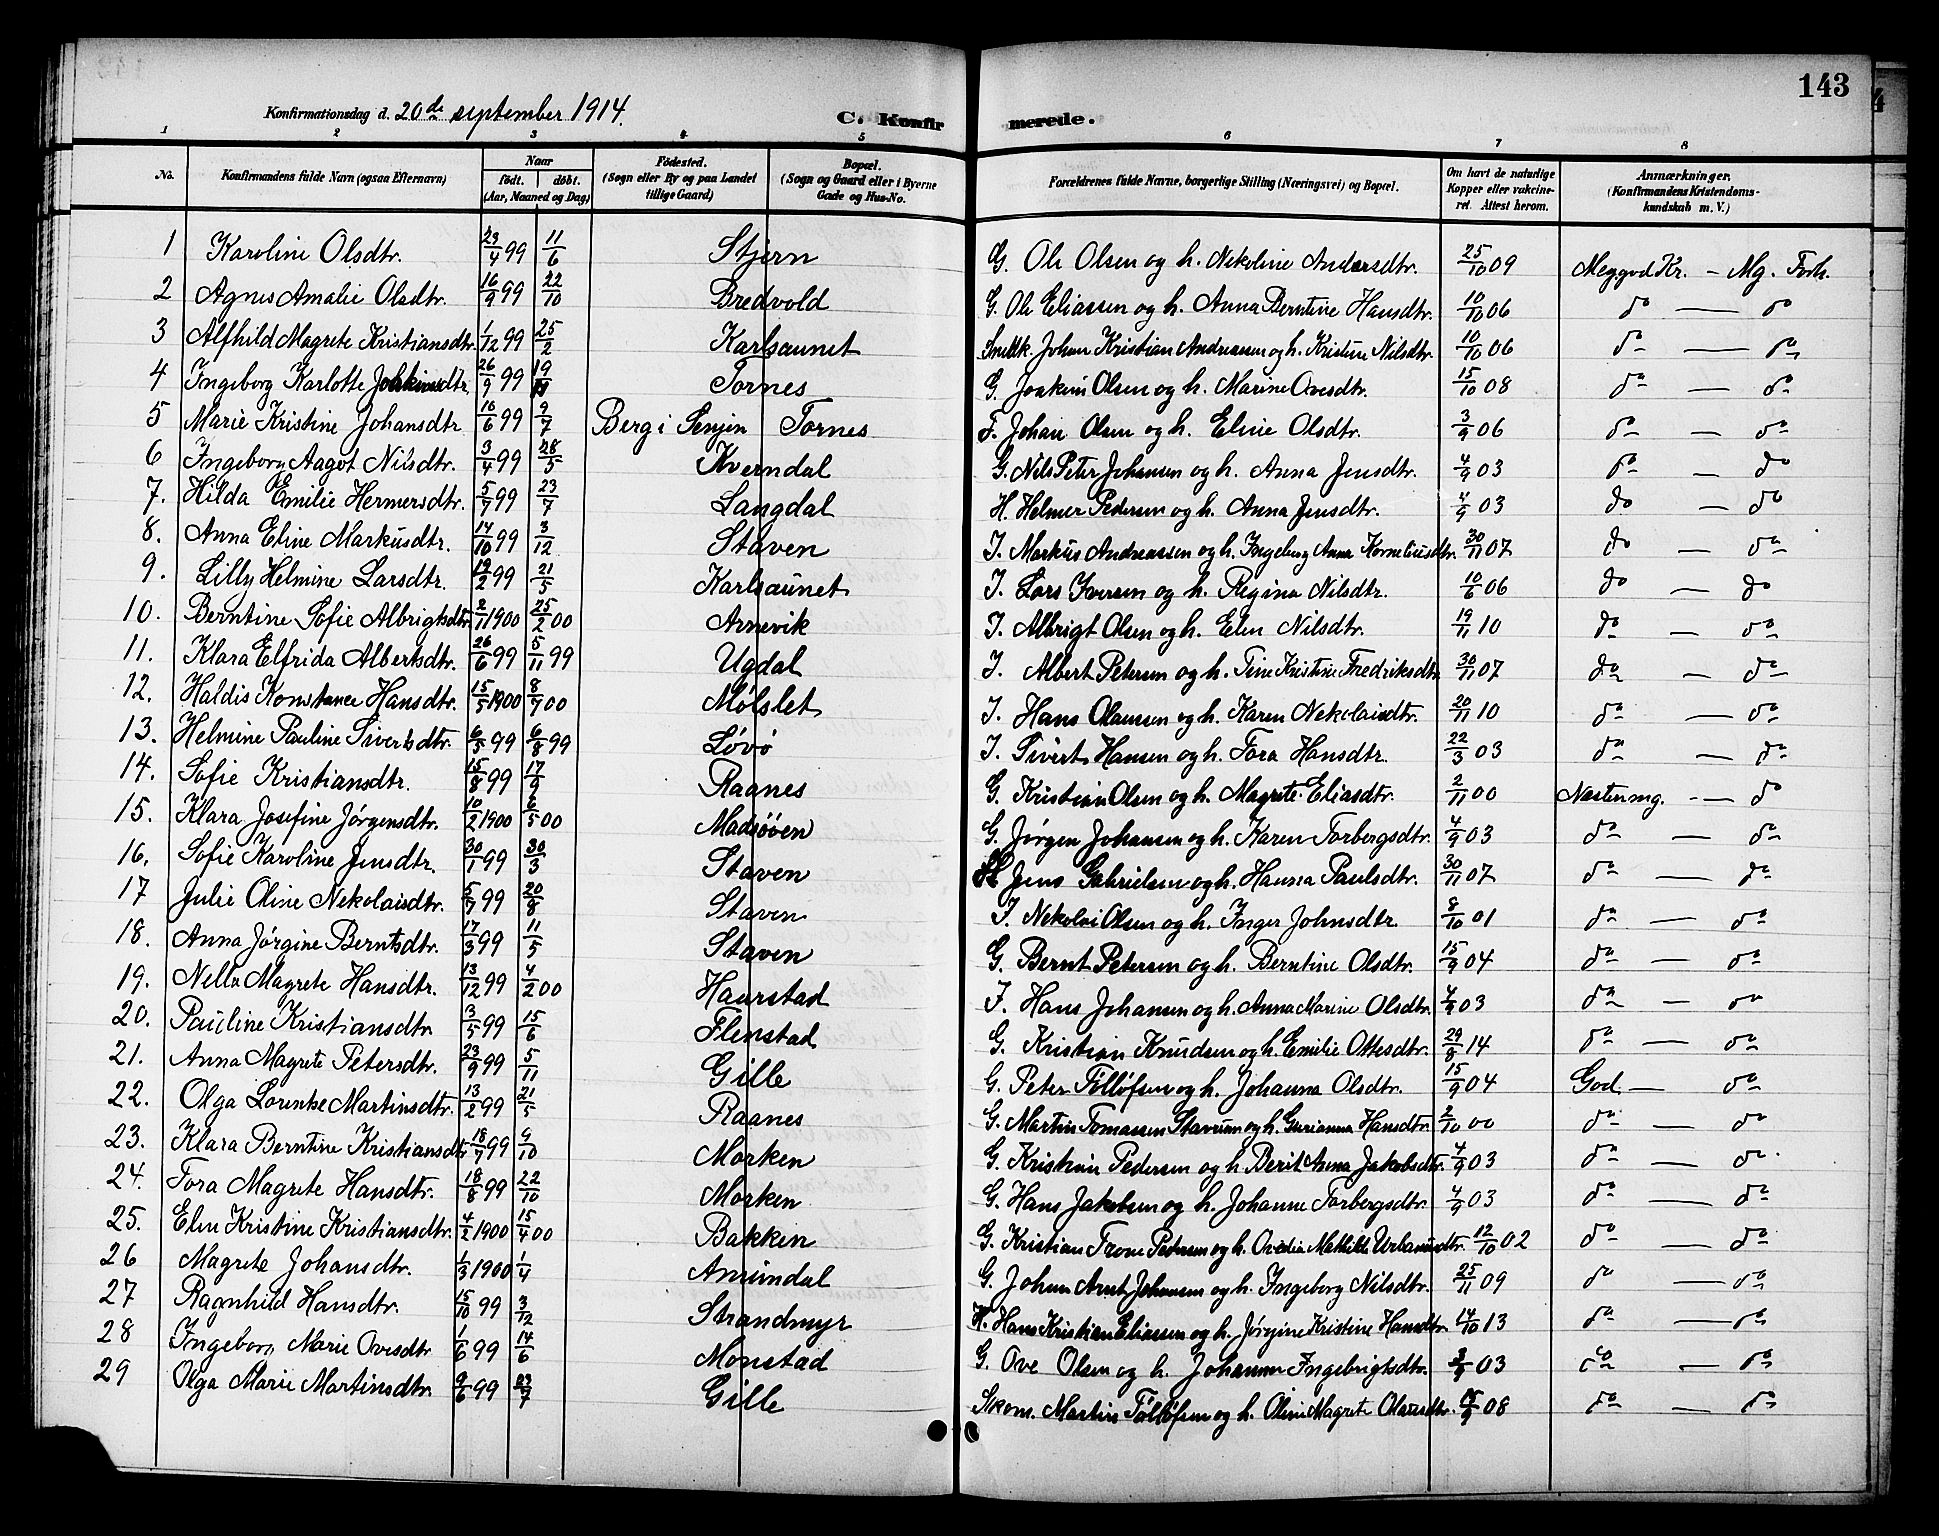 143
Konfirmationsdag d. 20de september 1914.
C. Konfirmerede.
1 2 3 4 5 6 7 8
No. Konfirmandens fulde Navn (ogsaa Efternavn) Naar født. døbt. (Aar, Maaned og Dag) Fødested. (Sogn eller By og paa Landet tillige Gaard) Bopæl. (Sogn og Gaard eller i Byerne Gade og Hus-No. Forældrenes fulde Navne, borgerlige Stilling (Næringsvei) og Bopæl. Om havt de naturlige Kopper eller vakcineret. Attest herom. Anmærkninger. (Konfirmandens Kristendomskundskab m. V.)
1 Karoline Olsdtr. 23/4 99 11/6 Stjern G. Ole Olsen og h. Nekoline Andersdtr. 25/10 09 Meg god Kr. - Mg. Forh.
2 Agnes Amalie Olsdtr. 16/9 99 22/10 Bredvold G. Ole Eliassen og h. Anna Berntine Hansdtr. 10/10 06 do — do
3 Alfhild Magrete Kristiansdtr. 1/12 99 25/2 Karlsaunet Snekk. Johan Kristian Andreassen og h. Kristine Nilsdtr. 10/10 06 do — do
4 Ingeborg Karlotte Joakimsdtr. 26/9 99 19 Tornes G. Joakim Olsen og h. Marine Ovesdtr. 15/10 08 do — do
5 Marie Kristine Johansdtr 16/6 99 9/7 Berg i Senjen Tornes F. Johan Olsen og h. Eline Olsdtr. 3/9 06 do — do
6 Ingeborg Aagot Nilsdtr. 3/4 99 28/5 Kverndal G. Nils Peter Johansen og h. Anna Jensdtr. 4/9 03 do — do
7. Hilda Emilie Hermersdtr. 5/7 99 23/7 Langdal H. Helmer Pedersen og h. Anna Jensdtr. 4/9 03 do — do
8. Anna Eline Markusdtr. 14/10 99 3/12 Staven I. Markus Andreassen og h. Ingeborg Anna Korneliusdtr. 30/11 07 do — do
9. Lilly Helmine Larsdtr. 19/2 99 21/5 Karlsaunet I. Lars Iversen og h. Regina Nilsdtr. 10/6 06 do — do
10. Berntine Sofie Albrigtsdtr. 2/1 1900 25/2 00 Arnevik I. Albrigt Olsen og h. Elen Nilsdtr. 19/11 10 do — do
11. Klara Elfrida Albertsdtr. 26/6 99 5/11 99 Ugdal I. Albert Petersen og h. Tine Kristine Fredriksdtr. 30/11 07 do — do
12. Haldis Konstance Hansdtr. 15/5 1900 8/7 00 Mølslet I. Hans Olaussen og h. Karen Nekolaisdtr. 20/11 10 do — do
13. Helmine Pauline Sivertsdtr. 6/5 99 6/8 99 Løvø I. Sivert Hansen og h. Tora Hansdtr. 22/3 03 do — do
14. Sofie Kristiansdtr. 15/8 99 17/9 Raanes G. Kristian Olsen og h. Magrete Eliasdtr. 2/11 00 Næsten mg. - — do
15. Klara Josefine Jørgensdtr. 10/2 1900 6/5 00 Madsøøen G. Jørgen Johansen og h. Karen Torbergsdtr. 4/9 03 do — do
16. Sofie Karoline Jensdtr. 30/1 99 30/3 Staven Jens Gabrielsen og h. Hanna Paulsdtr. 30/11 07 do — do
17 Julie Oline Nekolaisdtr. 5/7 99 20/8 Staven I. Nekolai Olsen og h. Inger Johnsdtr. 8/10 01 do — do
18. Anna Jørgine Berntsdtr. 17/3 99 11/5 Staven G. Bernt Petersen og h. Berntine Olsdtr. 15/9 04 do — do
19. Nella Magrete Hansdtr. 13/12 99 4/2 00 Haarstad F. Hans Johansen og h. Anna Marine Olsdtr. 4/9 03 do — do
20. Pauline Kristiansdtr. 3/5 99 15/6 Flenstad G. Kristian Knudsen og h. Emilie Ottesdtr. 29/8 14 do — do
21. Anna Magrete Petersdtr. 23/9 99 5/11 Gille G. Peter Tølløfsen og h. Johanna Olsdtr. 15/9 04 God — do
22. Olga Lorentse Martinsdtr. 13/2 99 21/5 Raanes G. Martin Tomassen og h. Gurianna Hansdtr. 2/10 00 do — do
23. Klara Berntine Kristiansdtr. 18/7 99 9/10 Morken G. Kristian Pedersen og h. Berit Anna Jakobsdtr. 4/9 03 do — do
24. Tora Magrete Hansdtr. 18/8 99 22/10 Morken G. Hans Jakobsen og h. Johanne Torbergsdtr. 4/9 03 do — do
25. Elen Kristine Kristiansdtr. 4/2 1900 15/4 00 Bakken G. Kristian Trone Pedersen og h. Ovedia Mathilde Urbanusdtr. 12/10 02 do — do
26 Magrete Johansdtr. 1/3 1900 1/4 Arnundal G. Johan Arnt Johansen og h. Ingeborg Nilsdtr. 25/11 09 do — do
27 Ragnhild Hansdtr. 15/10 99 3/12 Strandmyr H. Hans Kristian Eliassen og h. Jørgine Kristine Hansdtr. 14/10 13 do — do
28 Ingeborg Marie Ovesdtr 1/6 99 14/6 Monstad G. Ove Olsen og h. Johanna Ingebrigtsdtr. 3/9 03 do — do
29 Olga Marie Martinsdtr. 9/6 99 23/7 Gille Skom. Martin Tølløfsen og h. Oline Magrete Olausdtr. 15/9 08 do — do